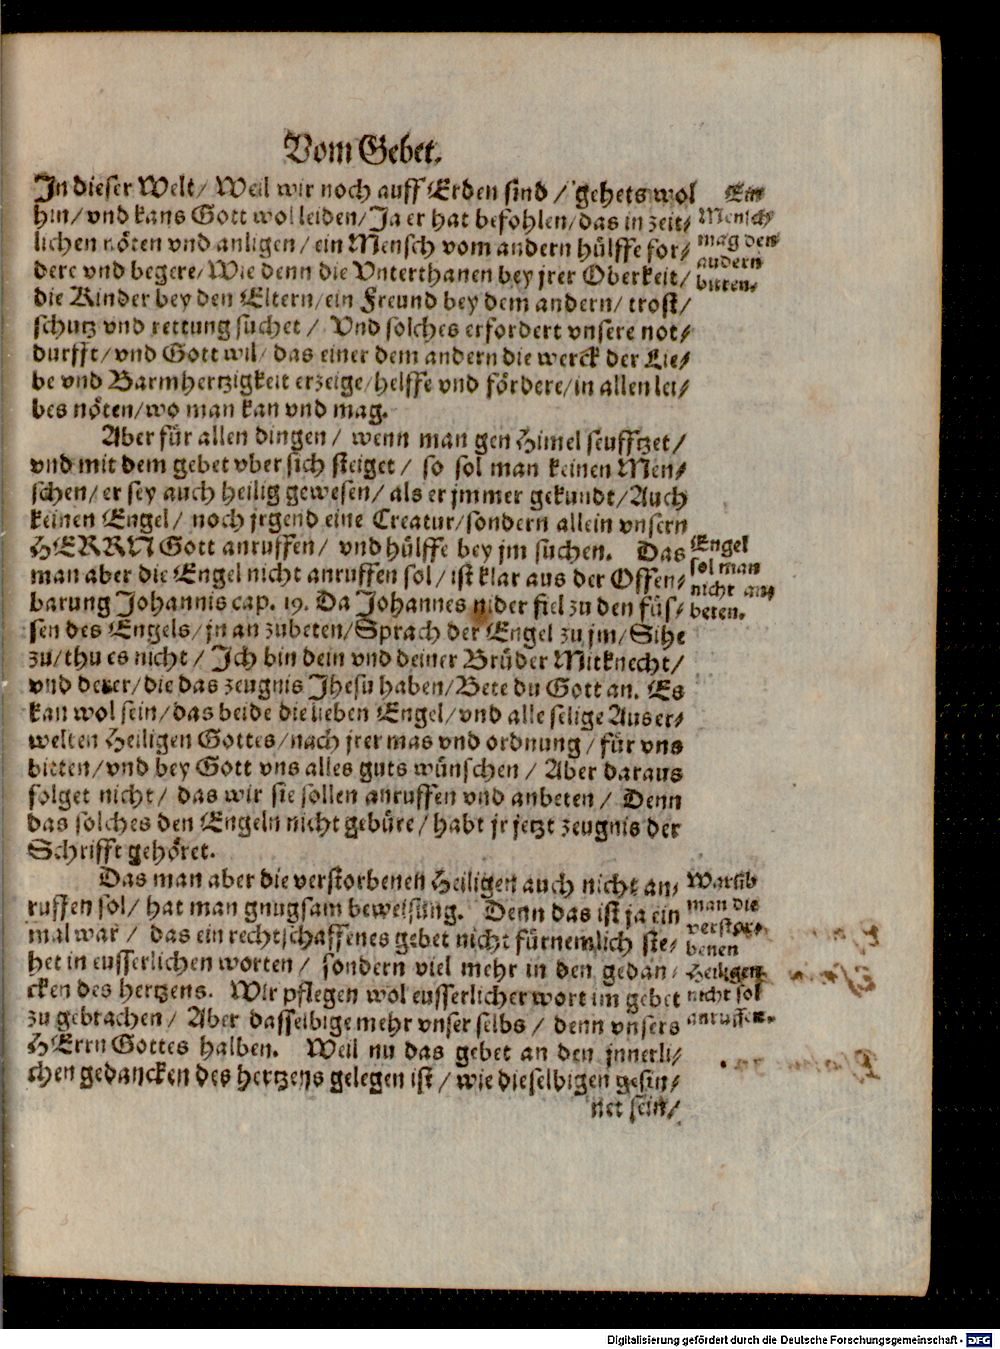 Vom Gebet.
In dieser Welt/ Weil wir noch auff Erden sind / gehets wol
hin/ vnd kans Gott wol leiden/ Ja er hat befohlen/ das in zeit/
lichen nöten vnd anligen/ ein Mensch vom andern hülffe for/
dere vnd begere/ Wie denn die Vnterthanen bey jrer Oberkeit/
die Kinder bey den Eltern/ ein Freund bey dem andern/ trost/
schutz vnd rettung suchet / Vnd solches erfordert vnsere not/
durfft/ vnd Gott wil/ das einer dem andern die werck der Lie/
be vnd Barmhertzigkeit erzeige/ helffe vnd fördere/ in allen lei/
bes nöten/ wo man kan vnd mag.
Ein
Mensch
mag den
andern
bitten.
Aber für allen dingen / wenn man gen Himel seufftzet/
vnd mit dem gebet vber sich steiget / so sol man keinen Men/
schen/ er sey auch heilig gewesen/ als er jmmer gekundt/ Auch
keinen Engel/ noch jrgend eine Creatur/ sondern allein vnsern
HERRN Gott anruffen/ vnd hülffe bey jm suchen. Das
man aber die Engel nicht anruffen sol/ ist klar aus der Offen/
barung Johannis cap. 19. Da Johannes nider fiel zu den füs/
sen des Engels/ jn an zubeten/ Sprach der Engel zu jm/ Sihe
zu/ thu es nicht / Ich bin dein vnd deiner Brüder Mitknecht/
vnd derer/ die das zeugnis Jhesu haben/ Bete du Gott an. Es
kan wol sein/ das beide die lieben Engel/ vnd alle selige Auser/
welten Heiligen Gottes/ nach jrer mas vnd ordnung / für vns
bitten/ vnd bey Gott vns alles guts wünschen / Aber daraus
folget nicht/ das wir sie sollen anruffen vnd anbeten / Denn
das solches den Engeln nicht gebüre/ habt jr jetzt zeugnis der
Schrifft gehöret.
Engel
sol man
nicht an/
beten.
Das man aber die verstorbenen Heiligen auch nicht an/
ruffen sol/ hat man gnugsam beweisung. Denn das ist ja ein
mal war / das ein rechtschaffenes gebet nicht fürnemlich ste/
het in eusserlichen worten/ sondern viel mehr in den gedan/
cken des hertzens. Wir pflegen wol eusserlicher wort im gebet
zu gebrachen/ Aber dasselbige mehr vnser selbs / denn vnsers
HErrn Gottes halben. Weil nu das gebet an den jnnerli/
chen gedancken des hertzens gelegen ist / wie dieselbigen gesin/
net sein/
Warüb
man die
verstor/
benen
Heiligen
nicht sol
anruffen.
Digitalisierung gefördert durch die Deutsche Forschungsgemeinschaft - DFG